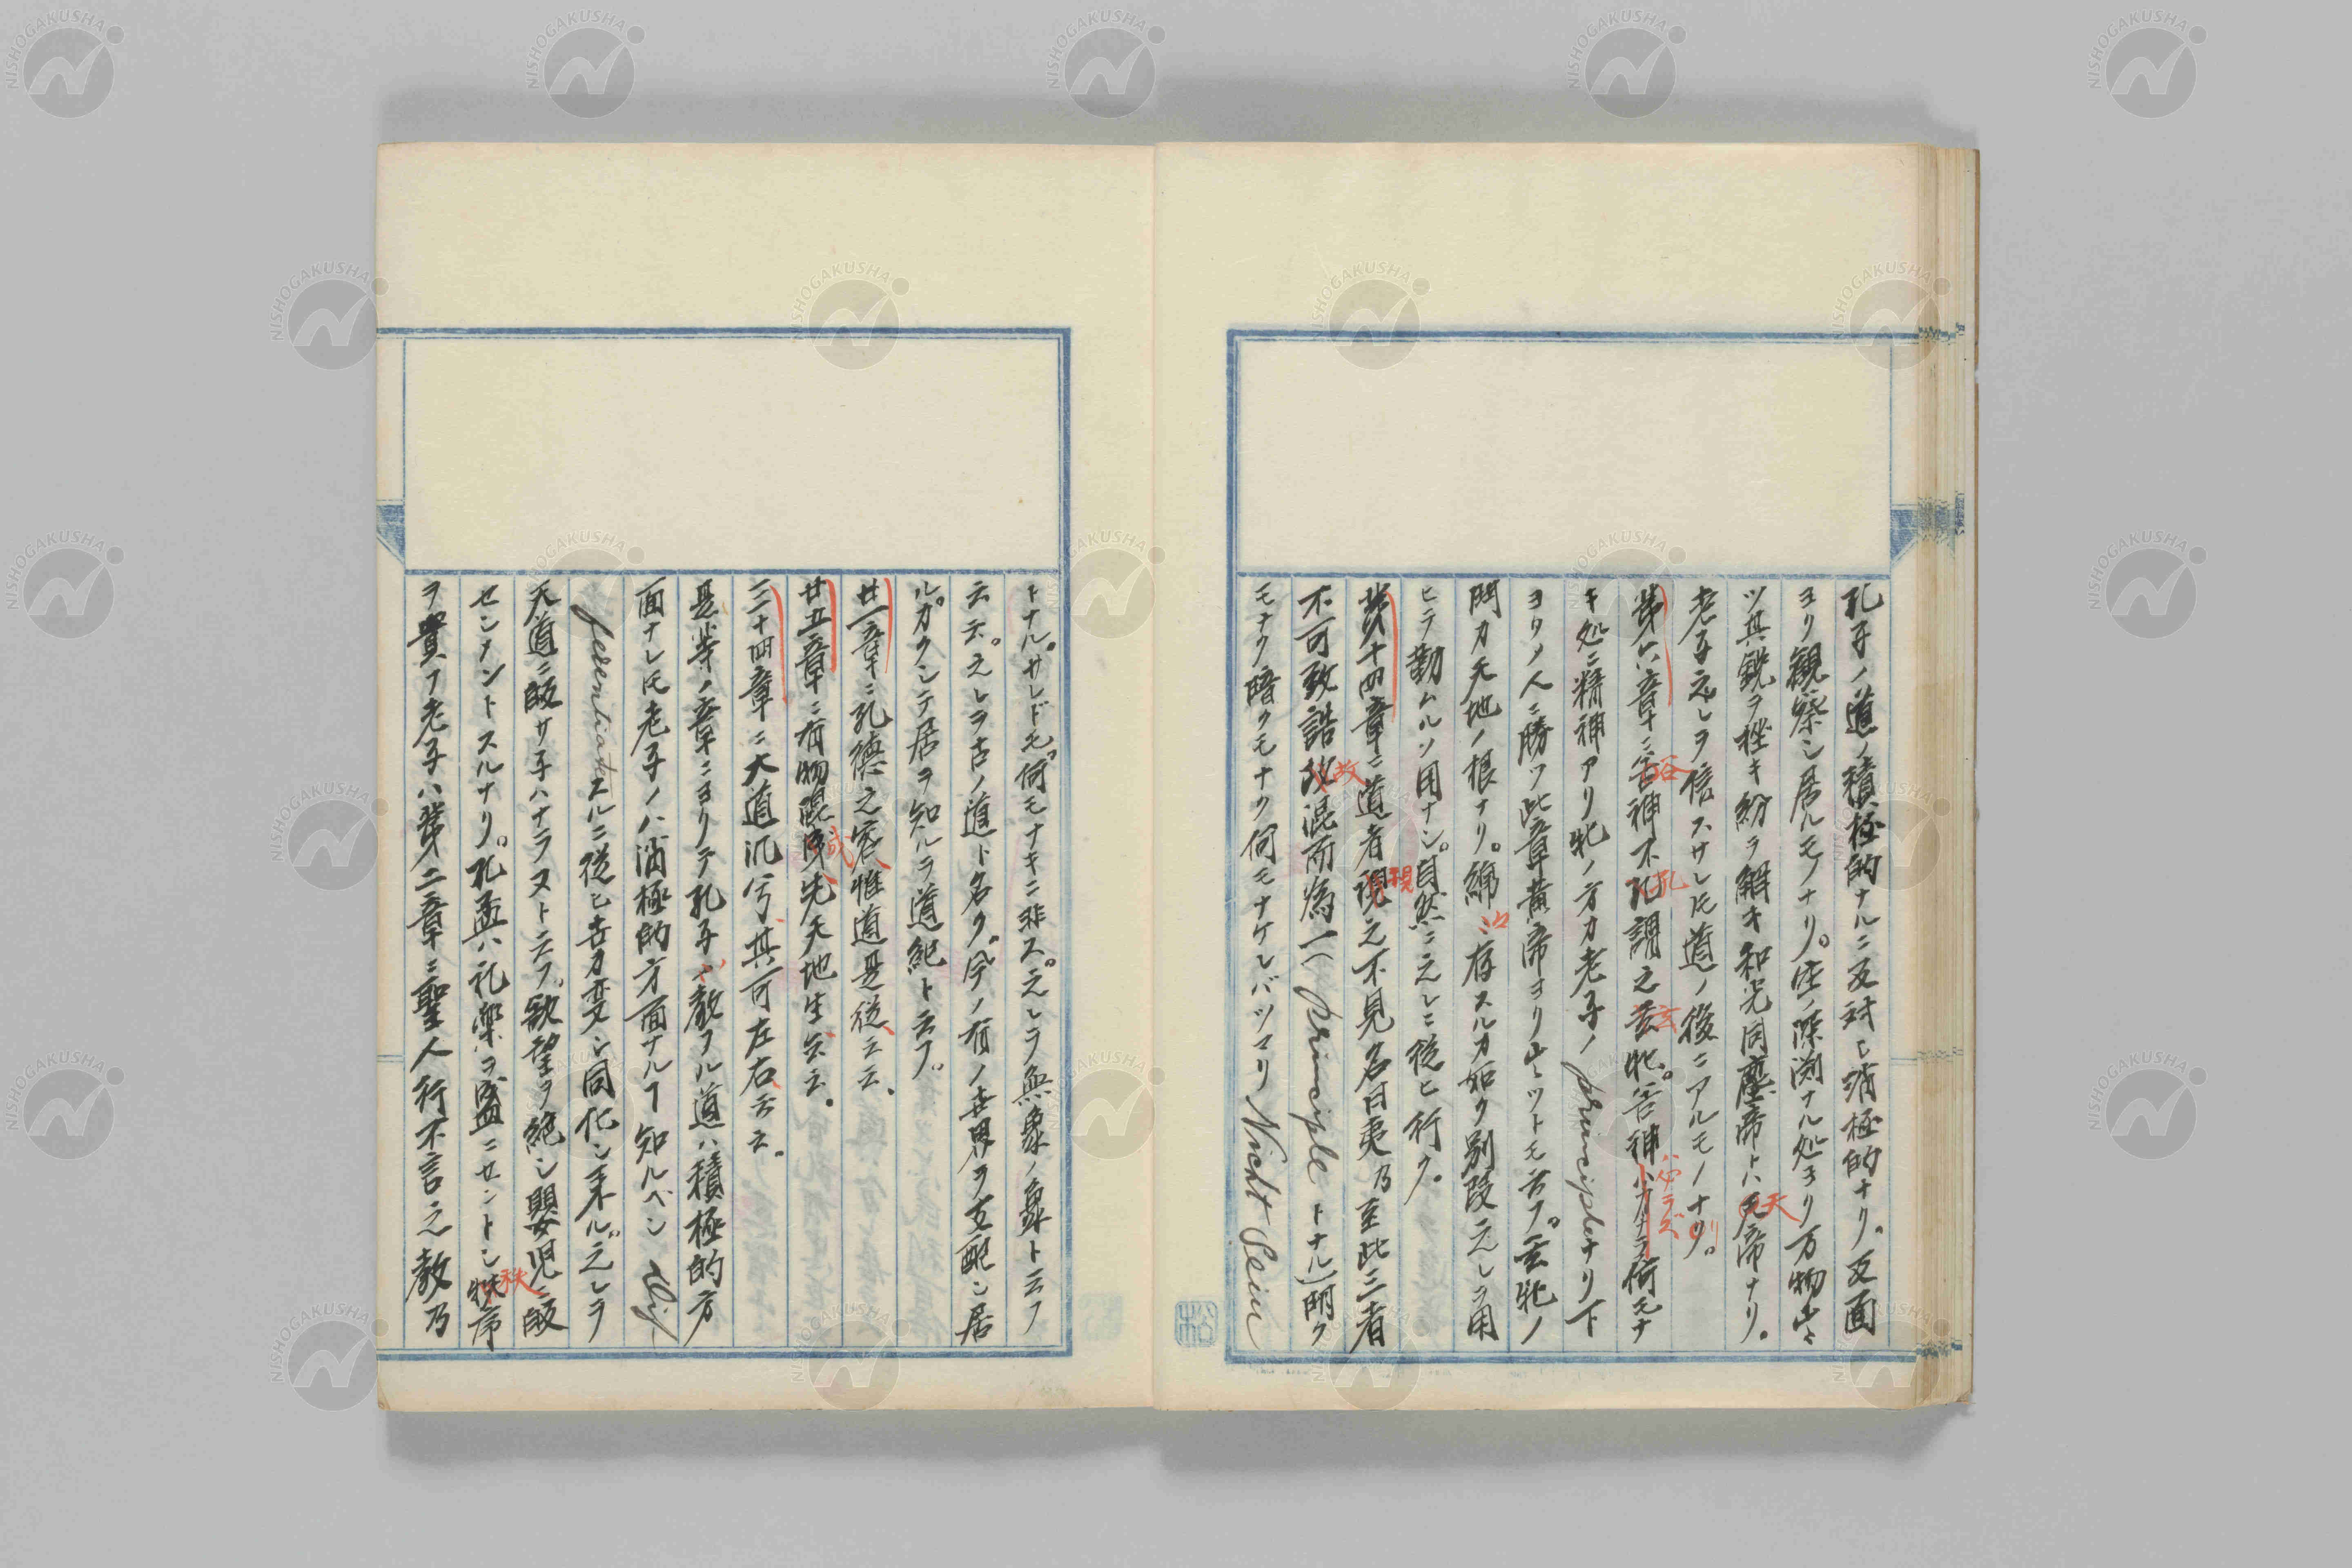 孔子ノ道ノ積極的ナルニ反対シ消極的ナリ。反面
ヨリ観察シ居ルモノナリ。空ノ深渕ナル処ヨリ万物出ヅ
ツ其鋭ヲ挫キ紛ヲ解キ和光同塵帝トハ天帝ナリ。
老子之レヲ信スサレ𪜈道ノ後ニアルモノナリ。
第六章ニ谷神不死謂之玄牝。谷神ハ必ラズ何モナ
キ処ニ精神アリ牝ノ方カ老子ノprincipleナリ下
ヨリノ人ニ勝ツ此章黄帝ヨリ出ヅトモ云フ。玄牝ノ
門カ天地ノ根ナリ。綿々存スルカ如ク別段之レヲ用
ヒテ勤ムルソ用ナシ。自然ニ之レニ従ヒ行ク。
第十四章ニ道者視之不見名曰夷乃至此三者
不可致詰故混而為一(principleトナル)明ク
モナク暗クモナク何モナケレバツマリNicht Sein
トナル。サレド𪜈何モナキニ非ス。之レヲ無象ノ象ト云フ
云云。之レヲ古ノ道ト名ク。今ノ有ノ世界ヲ支配シ居
ルカクシテ居ヲ知ルヲ道紀ト云フ。
廿一章ニ孔徳之容惟道是従云云。
廿五章ニ有物混成先天地生云云。
三十四章ニ大道汎兮其可左右云云。
是等ノ章ニヨリテ孔子ノ教フル道ハ積極的方
面ナレ𪜈老子ノハ消極的方面ナルヿ知ルベシ dif-
ferentiateスルニ従ヒ世カ変シ同化シ来ル。之レヲ
天道ニ皈サ子ハナラヌト云フ。欲望ヲ絶シ嬰児ニ皈
センメントスルナリ。孔孟ハ礼楽ヲ盛ニセントシ秩序
ヲ貴フ老子ハ第二章ニ聖人行不言之教乃